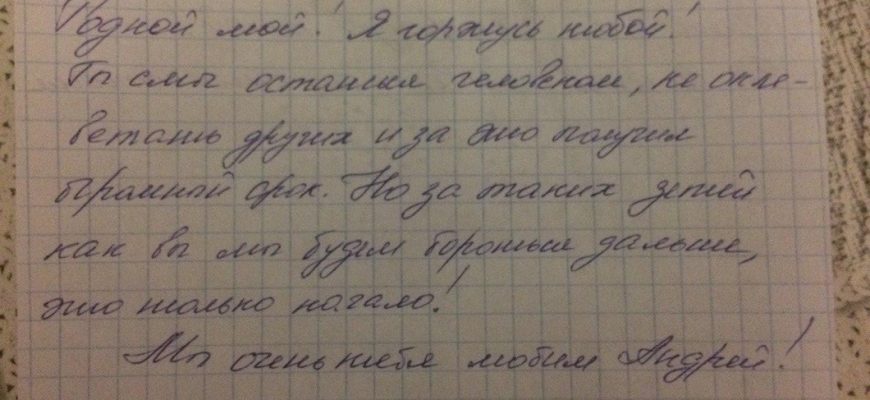 Родной мой! Я горжусь тобой!
Ты смог остаться человеком, не окле-
ветать других и за это получил
огромный срок. Но за таких детей
как вы мы будем бороться дальше,
это только начало!
Мы очень тебя любим Андрей!